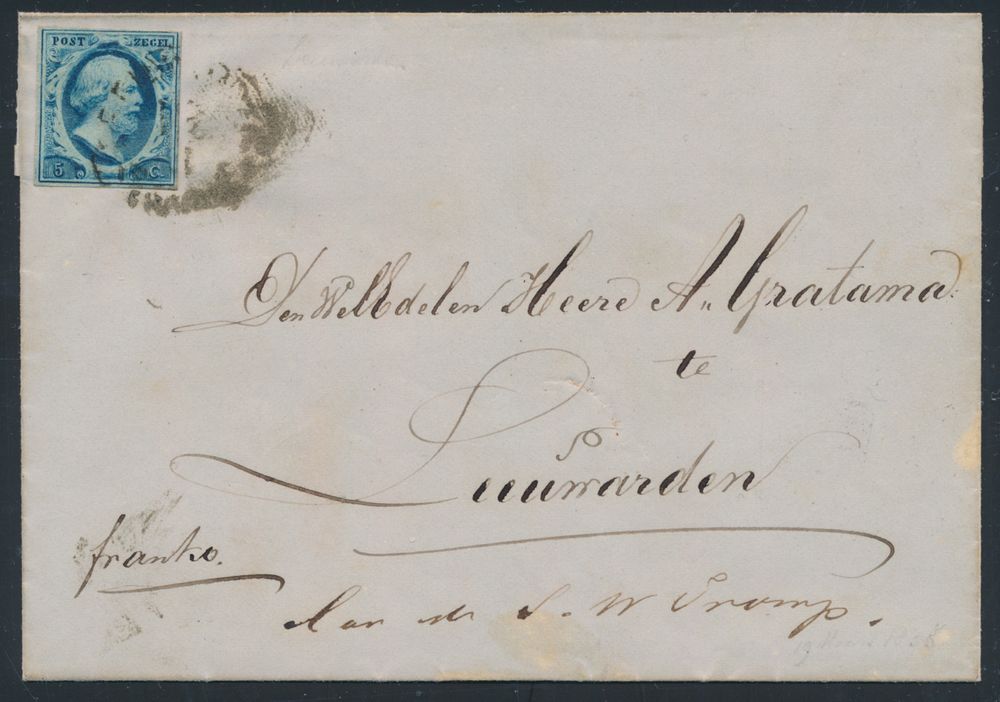 POST ZEGEL
5 C.
Den WelEdelen Heere A. Gratama
te
Leeuwarden
franko.
S. W Tromp.